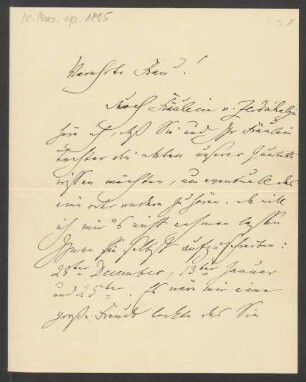 N. Mus. ep. 1895
Verehrte Frau!
Durch Fräulein v.
höre ich, daß Sie und Ihr Fräulein
Tochter die Daten unserer
wissen möchten, um eventuell das
eine oder andere zu hören. So will
ich mir's nicht nehmen lassen
Ihnen sie selbst aufzuschreiben:
28ter December, 13ter Januar
und 25ter. Es wäre mir eine
große Freude Sie